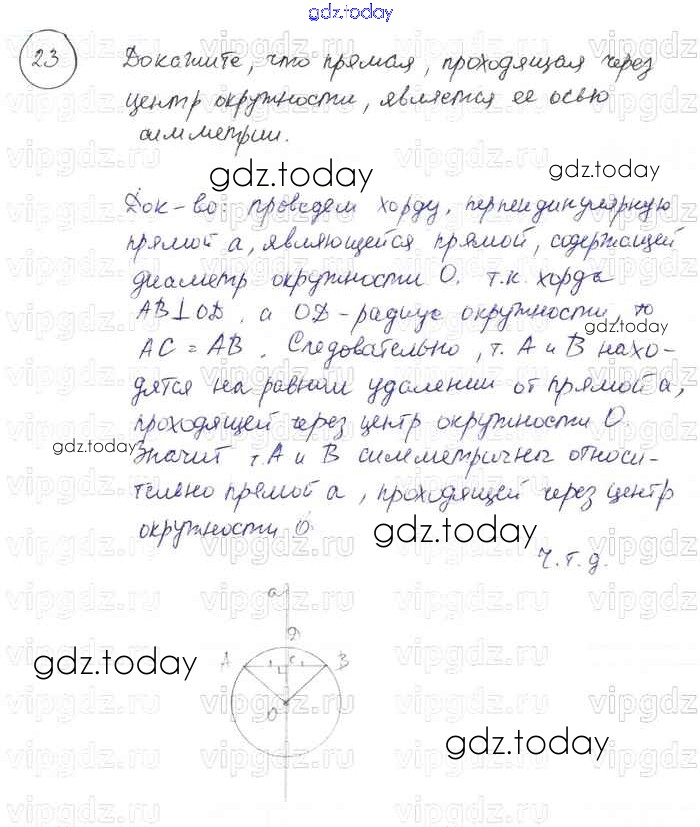 gdz.today
23 Докажите, что прямая, проходящая через
центр окружности, является ее осью
симметрии.
gdz.today
gdz.today
Док-во: проведем хорду, перпендикулярную
прямой а, являющейся прямой, содержащей
диаметр окружности О. т.к. хорда
AB⊥OD, а OD-радиус окружности, то
gdz.today
AC = AB. Следовательно, т. А и В нахо-
дятся на равном удалении от прямой а,
проходящей через центр окружности О.
gdz.today
Значит т. А и В симметричны относи-
тельно прямой а, проходящей через центр
окружности О
gdz.today
ч.т.д.
а
D
gdz.today
A C B
O
gdz.today
vipgdz.ru